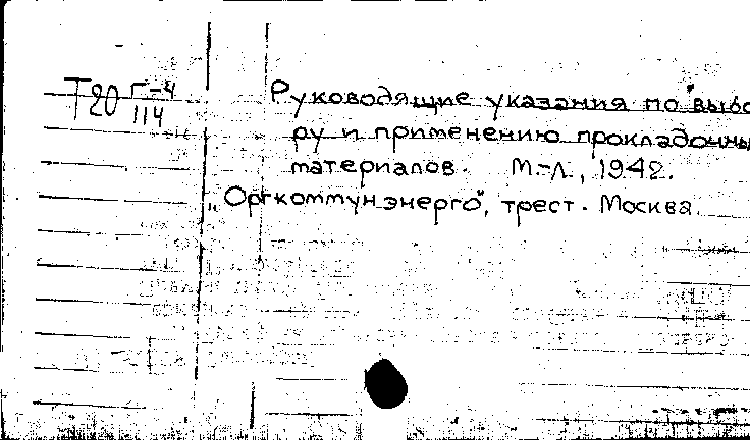 Т20 Г-4
114
Руководящие указания по выбо
ру и применению прокладочны
материалов. М.-Л., 1942.
„Оргкоммунэнерго", трест. Москва.